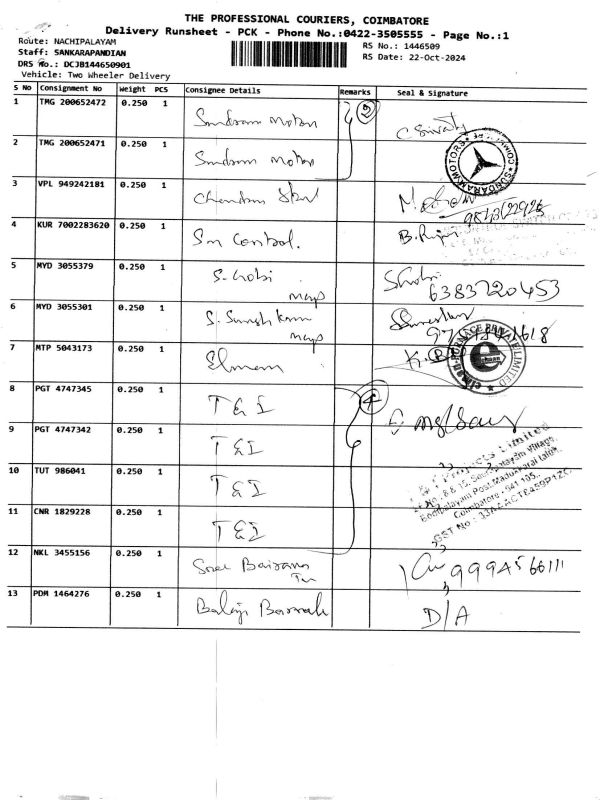 THE PROFESSIONAL COURIERS, COIMBATORE
Delivery Runsheet - PCK - Phone No.:0422-3505555 - Page No.:1
Route: NACHIPALAYAM
RS No.: 1446509
Staff: SANKARAPANDIAN
RS Date: 22-Oct-2024
DRS No.: DCJB144650901
Vehicle: Two Wheeler Delivery
S No Consignment No Weight PCS Consignee Details Remarks Seal & Signature
1 TMG 200652472 0.250 1 Sundram Motors
2 TMG 200652471 0.250 1 Sundram Motors
SUNDARAM MOTORS
3 VPL 949242181 0.250 1
4 KUR 7002283620 0.250 1 Sm Control.
5 MYD 3055379 0.250 1 S. Gobi
6383720453
6 MYD 3055301 0.250 1
7 MTP 5043173 0.250 1
FURNACE PRIVATE LIMITED
8 PGT 4747345 0.250 1 T & I 4
9 PGT 4747342 0.250 1 T & I
10 TUT 986041 0.250 1 T & I
Projects Limited
Coimbatore - 641 105.
GST No
11 CNR 1829228 0.250 1 T & I
12 NKL 3455156 0.250 1 9994566111
13 PDM 1464276 0.250 1 Balaji D/A